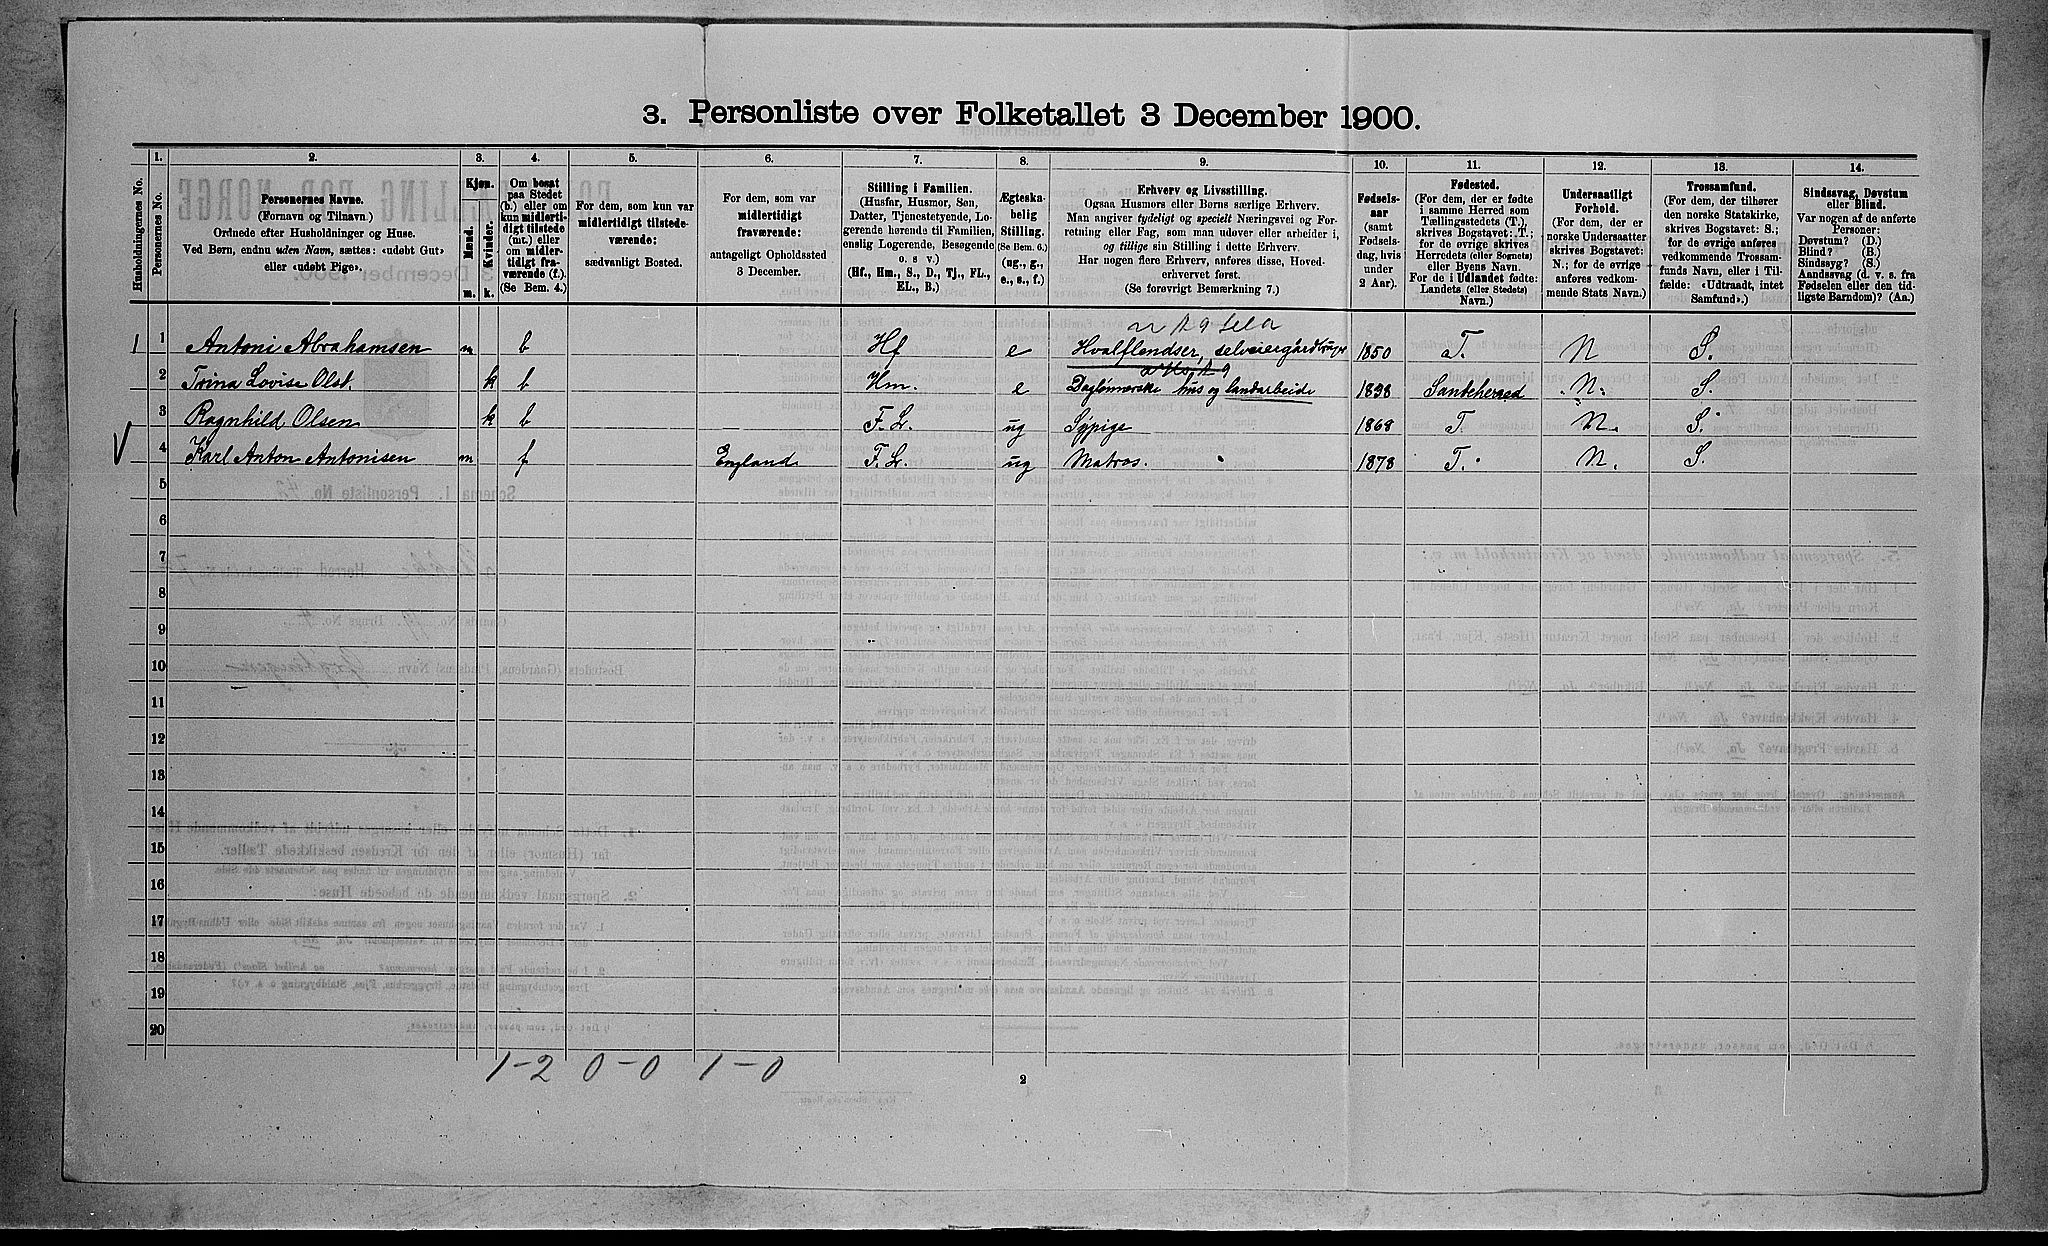 3. Personliste over Folketallet 3 December 1900.
Husholdningernes No.
1.
Personernes No.
2.
Personernes Navne.
(Fornavn og Tilnavn.)
Ordnede efter Husholdninger og Huse.
Ved Børn, endnu uden Navn, sættes: «udøbt Gut»
eller «udøbt Pige».
3.
Kjøn.
Mænd.
Kvinder.
m.
k.
4.
Om bosat
paa Stedet
(b.) eller om
kun midlerti-
digt tilstede
(mt.) eller
om midler-
tidigt fra-
værende (f.).
(Se Bem. 4.)
5.
For dem, som kun var
midlertidigt tilstede-
værende:
sædvanligt Bosted.
6.
For dem, som var
midlertidigt
fraværende:
antageligt Opholdssted
3 December.
7.
Stilling i Familien.
(Husfar, Husmor, Søn,
Datter, Tjenestetyende, Lo-
gerende hørende til Familien,
enslig Logerende, Besøgende
o. s. v.)
(Hf., Hm., S., D., Tj., FL.,
EL., B.)
8.
Ægteska-
belig
Stilling.
(Se Bem. 6.)
(ug., g.,
e., s., f.)
9.
Erhverv og Livsstilling.
Ogsaa Husmors eller Børns særlige Erhverv.
Man angiver tydeligt og specielt Næringsvei og For-
retning eller Fag, som man udøver eller arbeider i,
og tillige sin Stilling i dette Erhverv.
Har nogen flere Erhverv, anføres disse, Hoved-
erhvervet først.
(Se forøvrigt Bemærkning 7.)
10.
Fødsels-
aar
(samt
Fødsels-
dag, hvis
under
2 Aar).
11.
Fødested.
(For dem, der er fødte
i samme Herred som
Tællingsstedets (T.)
skrives Bogstavet: T.;
for de øvrige skrives
Herredets (eller Sognets)
eller Byens Navn.
For de i Udlandet fødte:
Landets (eller Stedets)
Navn.)
12.
Undersaatligt
Forhold.
(For dem, der er
norske Undersaatter
skrives Bogstavet:
N.; for de øvrige
anføres vedkom-
mende Stats Navn.)
13.
Trossamfund.
(For dem, der tilhører
den norske Statskirke,
skrives Bogstavet: S.;
for de øvrige anføres
vedkommende Trossam-
funds Navn, eller i Til-
fælde: «Udtraadt, intet
Samfund».)
14.
Sindssvag, Døvstum
eller Blind.
Var nogen af de anførte
Personer:
Døvstum? (D.)
Blind? (B.)
Sindssyg? (S.)
Aandssvag (d. v. s. fra
Fødselen eller den tid-
ligste Barndom)? (Aa.)
1 1 Antoni Abrahamsen m b Hf e Hvalflendser, selveiergårdbruger 1850 T. N S.
2 Trina Lovise Olsd. k b Hm. e Daglønnerske hus og landarbeide 1838 Sandeherred N. S.
3 Ragnhild Olsen k b F. L. ug Sypige 1868 T. N. S.
4 Karl Anton Antonisen m f England F. L. ug Matros. 1878 T. N. S.
5
6
7
8
9
10
11
12
13
14
15
16
17
18
19
20
1-2 0-0 1-0
2